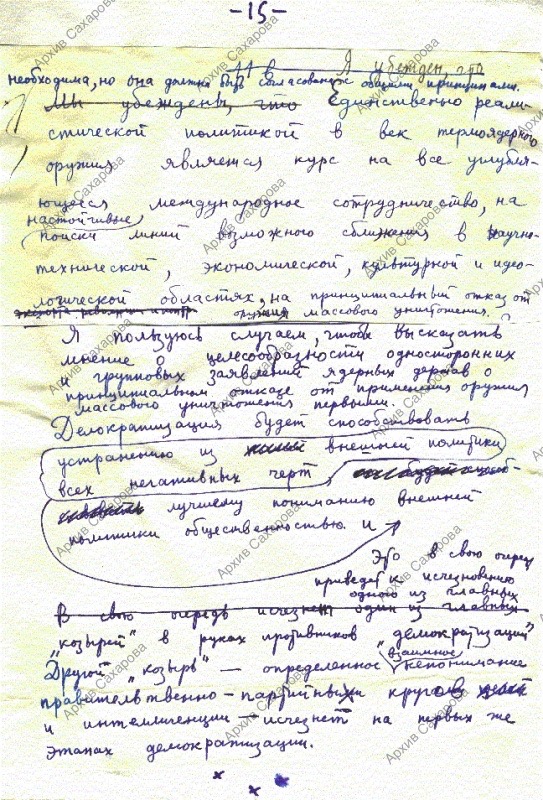 -15-
Я убежден, что
необходима, но она должна быть согласована с общими принципами.
Мы убеждены, что единственно реали-
стической политикой в век термоядерного
оружия является курс на все углубля-
ющееся международное сотрудничество, на
настойчивые
поиски линий возможного сближения в научно-
технической, экономической, культурной и идео-
логической областях, на принципиальный отказ от
оружия массового уничтожения.
Я пользуюсь случаем, чтобы высказать
мнение о целесообразности односторонних
и групповых заявлений ядерных держав о
принципиальном отказе от применения оружия
массового уничтожения первыми.
Демократизация будет способствовать
устранению из внешней политики
всех негативных черт,
лучшему пониманию внешней
политики общественностью и
Это в свою очередь
приведет к исчезновению
одного из главных
В свою очередь исчезнет один из главных
"козырей" в руках противников "демократизации"
взаимное
Другой "козырь" — определенное непонимание
правительственно-партийных кругов
и интеллигенции — исчезнет на первых же
этапах демократизации.
Архив Сахарова